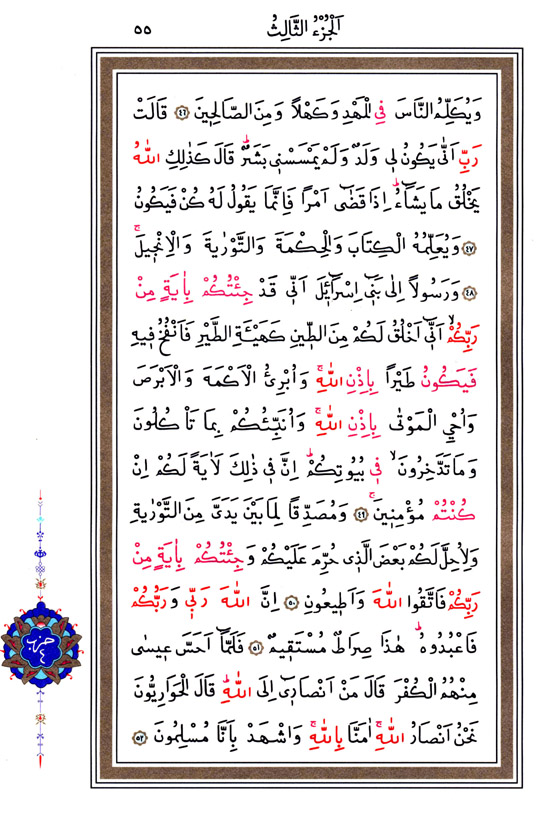 اَلْجُزْءُ الثَّالِثُ
٥٥
وَيُكَلِّمُ النَّاسَ فِي الْمَهْدِ وَكَهْلاً وَمِنَ الصَّالِحٖينَ ﴿٤٦﴾ قَالَتْ
رَبِّ اَنّٰى يَكُونُ لٖي وَلَدٌ وَلَمْ يَمْسَسْنٖي بَشَرٌؕ قَالَ كَذٰلِكِ اللّٰهُ
يَخْلُقُ مَا يَشَٓاءُؕ اِذَا قَضٰٓى اَمْرًا فَاِنَّمَا يَقُولُ لَهُ كُنْ فَيَكُونُ
﴿٤٧﴾ وَيُعَلِّمُهُ الْكِتَابَ وَالْحِكْمَةَ وَالتَّوْرٰيةَ وَالْاِنْجٖيلَۚ
﴿٤٨﴾ وَرَسُولاً اِلٰى بَنٖٓي اِسْرَٓائٖلَ اَنّٖي قَدْ جِئْتُكُمْ بِاٰيَةٍ مِنْ
رَبِّكُمْۙ اَنّٖٓي اَخْلُقُ لَكُمْ مِنَ الطّٖينِ كَهَيْـَٔةِ الطَّيْرِ فَاَنْفُخُ فٖيهِ
فَيَكُونُ طَيْرًا بِاِذْنِ اللّٰهِۚ وَاُبْرِئُ الْاَكْمَهَ وَالْاَبْرَصَ
وَاُحْيِ الْمَوْتٰى بِاِذْنِ اللّٰهِۚ وَاُنَبِّئُكُمْ بِمَا تَاْكُلُونَ
وَمَا تَدَّخِرُونَۙ فٖي بُيُوتِكُمْؕ اِنَّ فٖي ذٰلِكَ لَاٰيَةً لَكُمْ اِنْ
كُنْتُمْ مُؤْمِنٖينَۚ ﴿٤٩﴾ وَمُصَدِّقًا لِمَا بَيْنَ يَدَيَّ مِنَ التَّوْرٰيةِ
وَلِاُحِلَّ لَكُمْ بَعْضَ الَّذٖي حُرِّمَ عَلَيْكُمْ وَجِئْتُكُمْ بِاٰيَةٍ مِنْ
رَبِّكُمْ فَاتَّقُوا اللّٰهَ وَاَطٖيعُونِ ﴿٥٠﴾ اِنَّ اللّٰهَ رَبّٖي وَرَبُّكُمْ
فَاعْبُدُوهُؕ هٰذَا صِرَاطٌ مُسْتَقٖيمٌ ﴿٥١﴾ فَلَمَّٓا اَحَسَّ عٖيسٰى
مِنْهُمُ الْكُفْرَ قَالَ مَنْ اَنْصَارٖٓي اِلَى اللّٰهِؕ قَالَ الْحَوَارِيُّونَ
نَحْنُ اَنْصَارُ اللّٰهِۚ اٰمَنَّا بِاللّٰهِۚ وَاشْهَدْ بِاَنَّا مُسْلِمُونَ ﴿٥٢﴾
حزب
٤